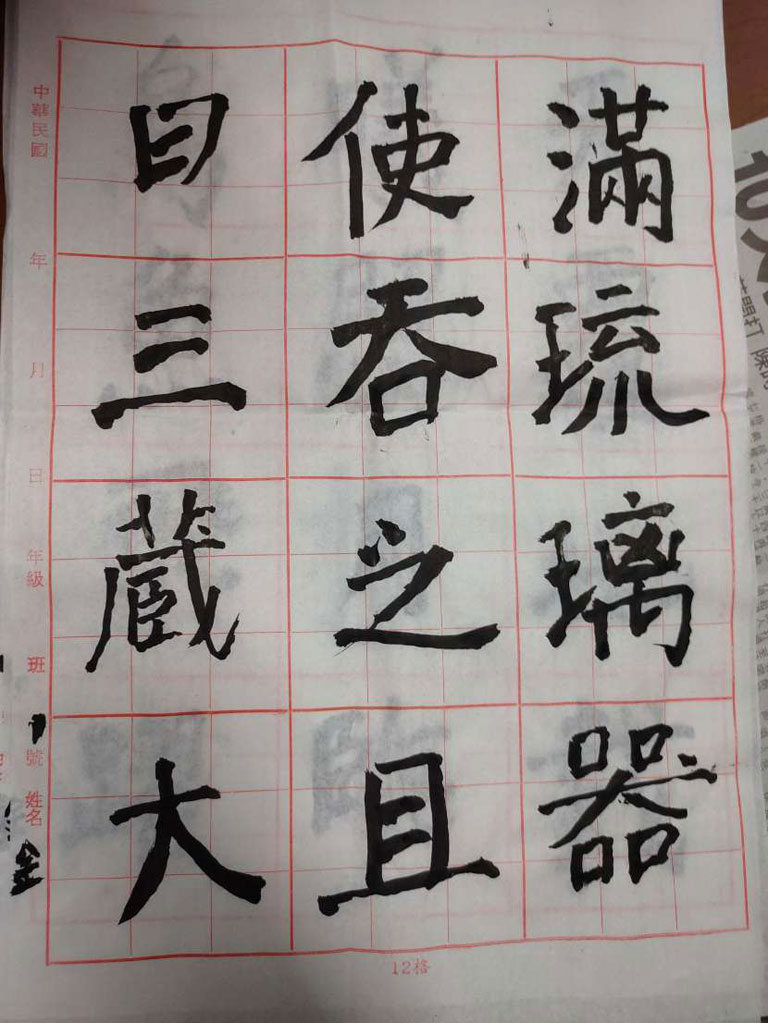 滿琉璃器
使吞之且
曰三藏大
中華民國 年 月 日 年級 班 號 姓名
12格